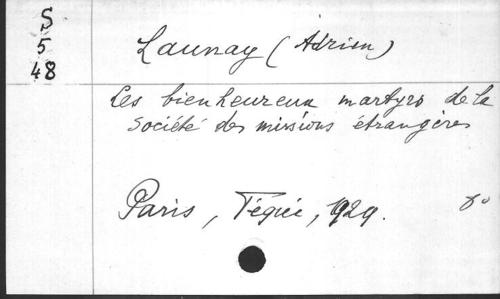 S
5
48
Launay (Adrien)
Les bienheureux martyrs de la
Société des missions étrangères
Paris, Téqui, 1929.
8°